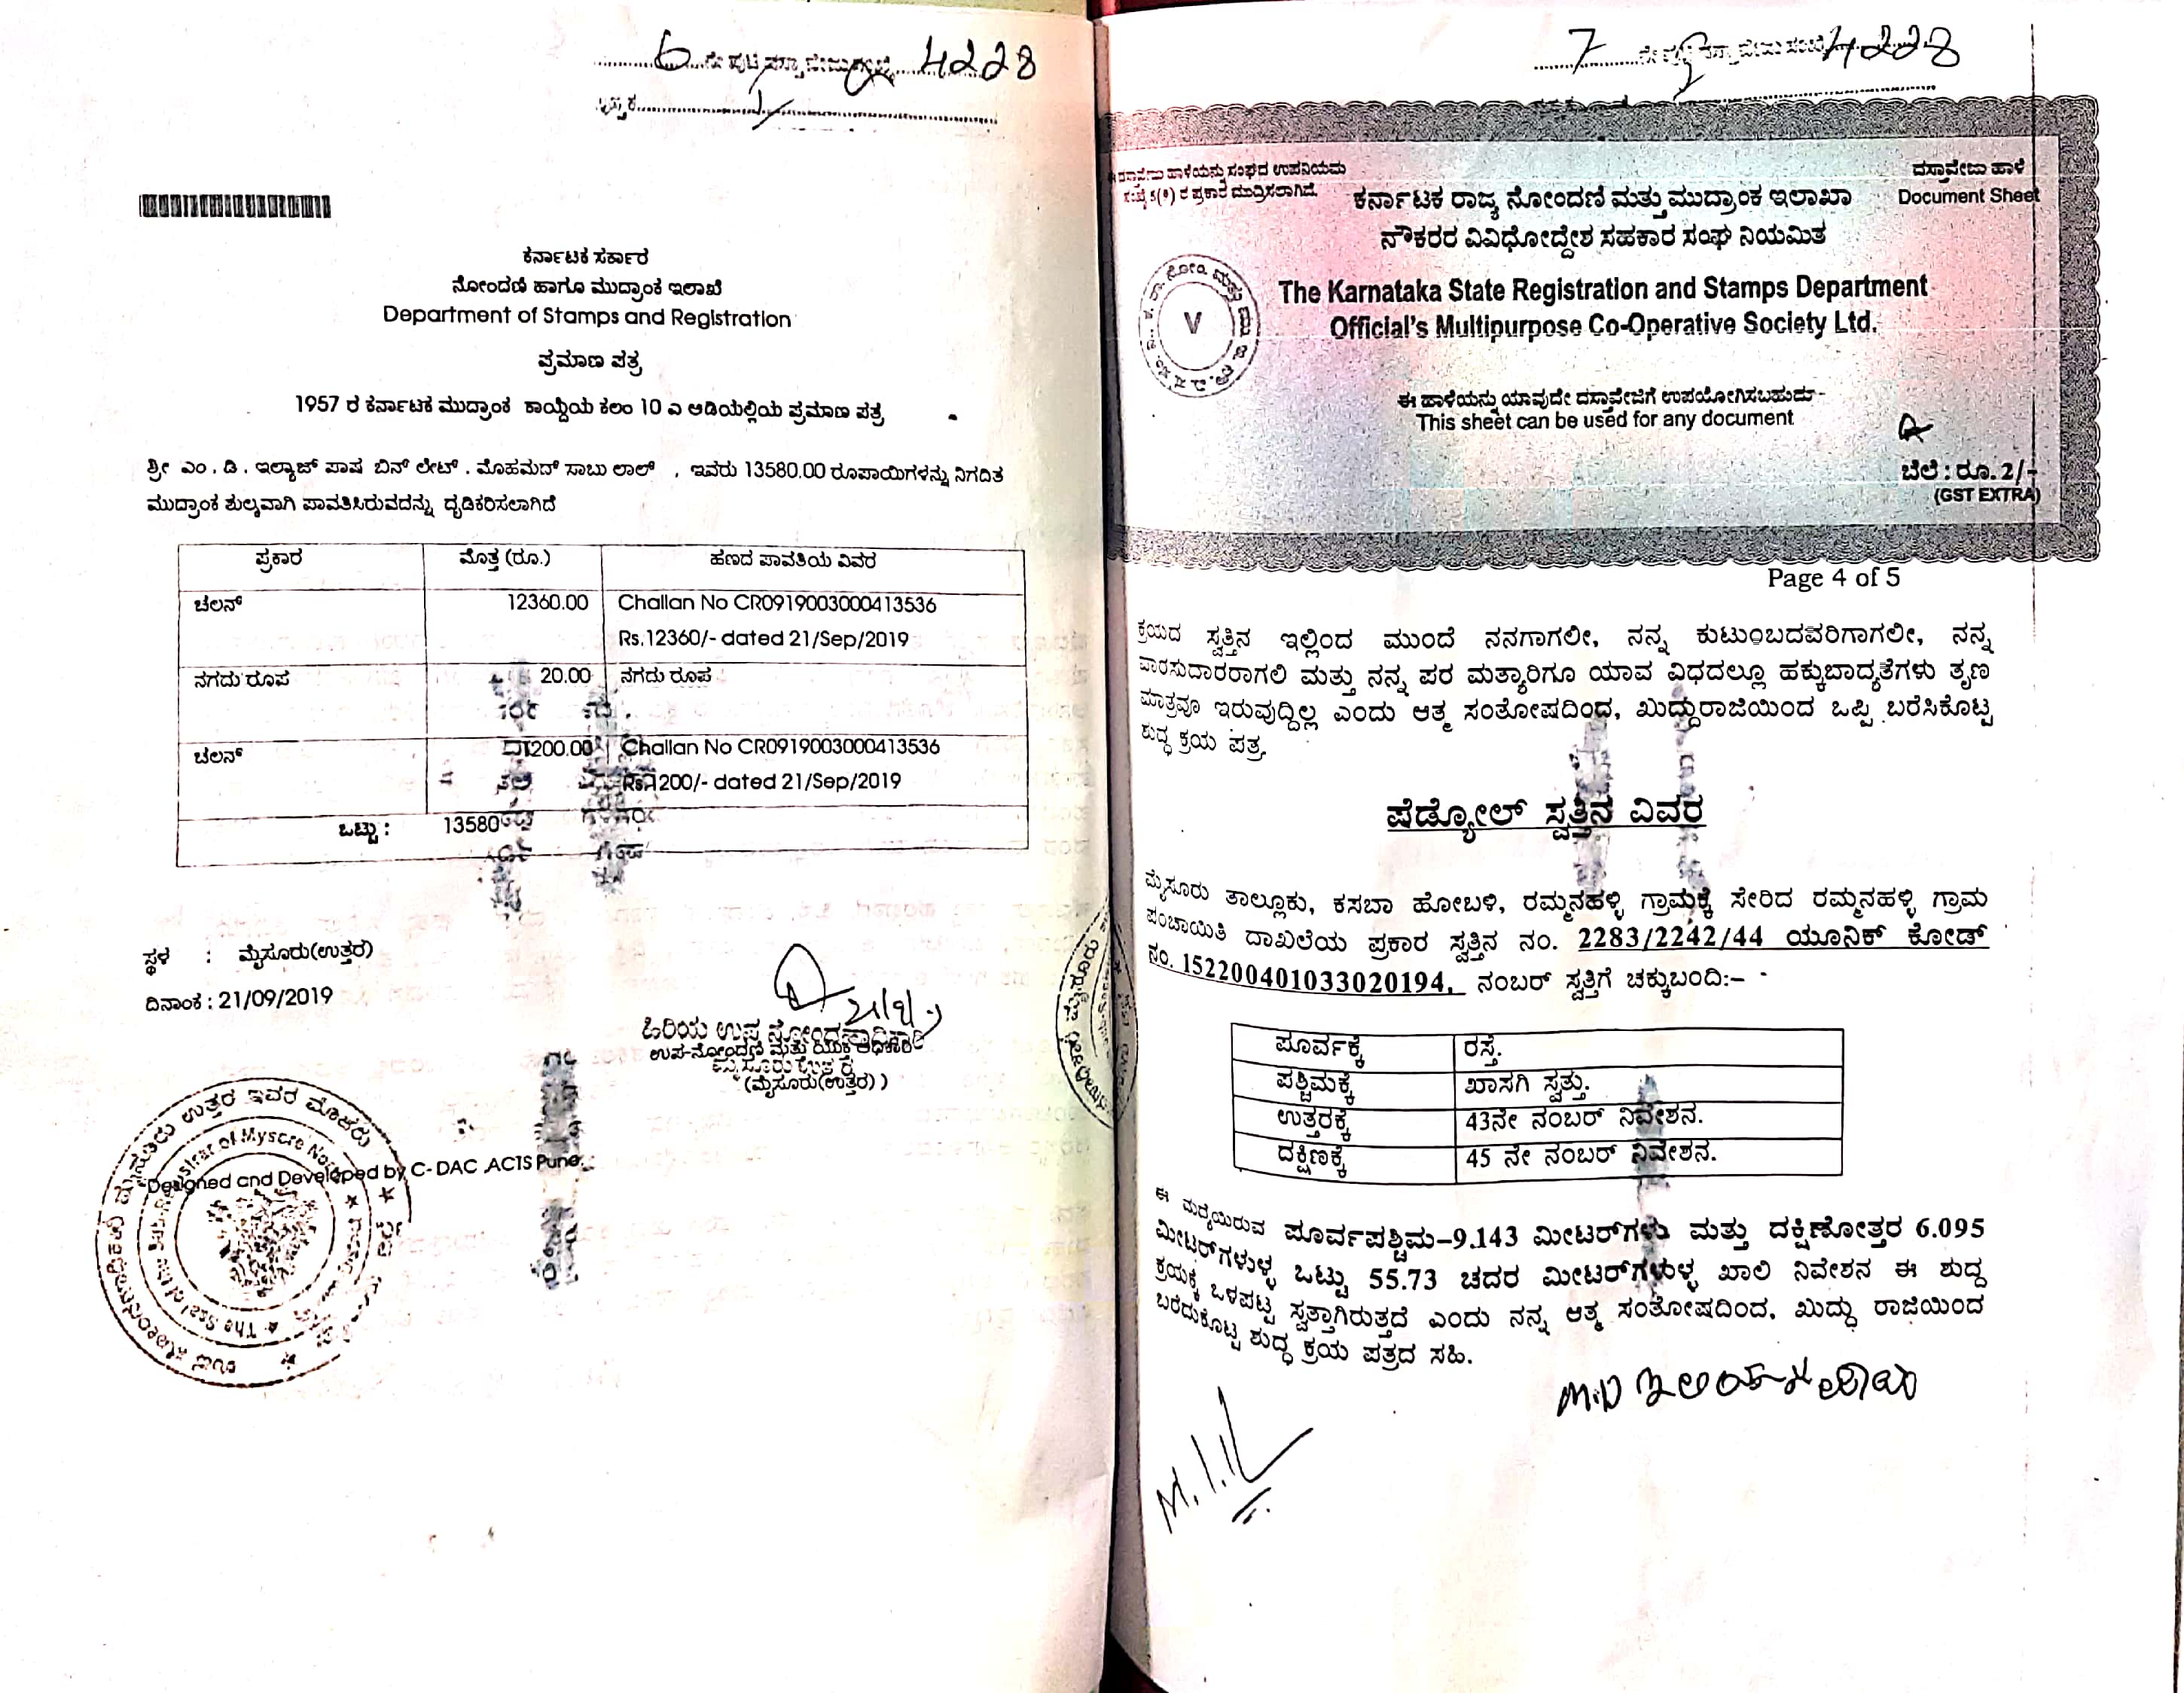 6 ನೇ ಪುಟ 4228
ಪುಸ್ತಕ
ಕರ್ನಾಟಕ ಸರ್ಕಾರ
ನೋಂದಣಿ ಹಾಗೂ ಮುದ್ರಾಂಕ ಇಲಾಖೆ
Department of Stamps and Registration
ಪ್ರಮಾಣ ಪತ್ರ
1957 ರ ಕರ್ನಾಟಕ ಮುದ್ರಾಂಕ ಕಾಯ್ದೆಯ ಕಲಂ 10 ಎ ಅಡಿಯಲ್ಲಿಯ ಪ್ರಮಾಣ ಪತ್ರ
ಶ್ರೀ ಎಂ . ಡಿ . ಇಲ್ಯಾಜ್ ಪಾಷ ಬಿನ್ ಲೇಟ್ . ಮೊಹಮದ್ ಸಾಬು ಲಾಲ್ , ಇವರು 13580.00 ರೂಪಾಯಿಗಳನ್ನು ನಿಗದಿತ
ಮುದ್ರಾಂಕ ಶುಲ್ಕವಾಗಿ ಪಾವತಿಸಿರುವದನ್ನು ದೃಡಿಕರಿಸಲಾಗಿದೆ
ಪ್ರಕಾರ ಮೊತ್ತ (ರೂ.) ಹಣದ ಪಾವತಿಯ ವಿವರ
ಚಲನ್ 12360.00 Challan No CR0919003000413536
Rs.12360/- dated 21/Sep/2019
ನಗದು ರೂಪ 20.00 ನಗದು ರೂಪ
ಚಲನ್ 1200.00 Challan No CR0919003000413536
Rs.1200/- dated 21/Sep/2019
ಒಟ್ಟು : 13580
ಸ್ಥಳ : ಮೈಸೂರು(ಉತ್ತರ)
ದಿನಾಂಕ : 21/09/2019
ಹಿರಿಯ ಉಪ ನೋಂದಣಾಧಿಕಾರಿ
ಉಪ-ನೋಂದಣಿ ಮತ್ತು ಯುಕ್ತ ಅಧಿಕಾರಿ
ಮೈಸೂರು ಉತ್ತರ
(ಮೈಸೂರು(ಉತ್ತರ) )
Designed and Developed by C- DAC ,ACTS Pune.
7 4228
ಈ ದಸ್ತಾವೇಜು ಹಾಳೆಯನ್ನು ಸಂಘದ ಉಪನಿಯಮ
ಸಂಖ್ಯೆ 5(9) ರ ಪ್ರಕಾರ ಮುದ್ರಿಸಲಾಗಿದೆ.
ದಸ್ತಾವೇಜು ಹಾಳೆ
Document Sheet
ಕರ್ನಾಟಕ ರಾಜ್ಯ ನೋಂದಣಿ ಮತ್ತು ಮುದ್ರಾಂಕ ಇಲಾಖಾ
ನೌಕರರ ವಿವಿಧೋದ್ದೇಶ ಸಹಕಾರ ಸಂಘ ನಿಯಮಿತ
V
The Karnataka State Registration and Stamps Department
Official's Multipurpose Co-Operative Society Ltd.
ಈ ಹಾಳೆಯನ್ನು ಯಾವುದೇ ದಸ್ತಾವೇಜಿಗೆ ಉಪಯೋಗಿಸಬಹುದು
This sheet can be used for any document
ಬೆಲೆ : ರೂ. 2/-
(GST EXTRA)
Page 4 of 5
ಕ್ರಯದ ಸ್ವತ್ತಿನ ಇಲ್ಲಿಂದ ಮುಂದೆ ನನಗಾಗಲೀ, ನನ್ನ ಕುಟುಂಬದವರಿಗಾಗಲೀ, ನನ್ನ
ವಾರಸುದಾರರಾಗಲಿ ಮತ್ತು ನನ್ನ ಪರ ಮತ್ಯಾರಿಗೂ ಯಾವ ವಿಧದಲ್ಲೂ ಹಕ್ಕುಬಾದ್ಯತೆಗಳು ತೃಣ
ಮಾತ್ರವೂ ಇರುವುದ್ದಿಲ್ಲ ಎಂದು ಆತ್ಮ ಸಂತೋಷದಿಂದ, ಖುದ್ದುರಾಜಿಯಿಂದ ಒಪ್ಪಿ ಬರೆಸಿಕೊಟ್ಟ
ಶುದ್ಧ ಕ್ರಯ ಪತ್ರ.
ಷೆಡ್ಯೋಲ್ ಸ್ವತ್ತಿನ ವಿವರ
ಮೈಸೂರು ತಾಲ್ಲೂಕು, ಕಸಬಾ ಹೋಬಳಿ, ರಮ್ಮನಹಳ್ಳಿ ಗ್ರಾಮಕ್ಕೆ ಸೇರಿದ ರಮ್ಮನಹಳ್ಳಿ ಗ್ರಾಮ
ಪಂಚಾಯಿತಿ ದಾಖಲೆಯ ಪ್ರಕಾರ ಸ್ವತ್ತಿನ ನಂ. 2283/2242/44 ಯೂನಿಕ್ ಕೋಡ್
ನಂ. 152200401033020194, ನಂಬರ್ ಸ್ವತ್ತಿಗೆ ಚಕ್ಕುಬಂದಿ:-
ಪೂರ್ವಕ್ಕೆ ರಸ್ತೆ.
ಪಶ್ಚಿಮಕ್ಕೆ ಖಾಸಗಿ ಸ್ವತ್ತು.
ಉತ್ತರಕ್ಕೆ 43ನೇ ನಂಬರ್ ನಿವೇಶನ.
ದಕ್ಷಿಣಕ್ಕೆ 45 ನೇ ನಂಬರ್ ನಿವೇಶನ.
ಈ ಮಧ್ಯೆಯಿರುವ ಪೂರ್ವಪಶ್ಚಿಮ-9.143 ಮೀಟರ್‌ಗಳು ಮತ್ತು ದಕ್ಷಿಣೋತ್ತರ 6.095
ಮೀಟರ್‌ಗಳುಳ್ಳ ಒಟ್ಟು 55.73 ಚದರ ಮೀಟರ್‌ಗಳುಳ್ಳ ಖಾಲಿ ನಿವೇಶನ ಈ ಶುದ್ಧ
ಕ್ರಯಕ್ಕೆ ಒಳಪಟ್ಟ ಸ್ವತ್ತಾಗಿರುತ್ತದೆ ಎಂದು ನನ್ನ ಆತ್ಮ ಸಂತೋಷದಿಂದ, ಖುದ್ದು ರಾಜಿಯಿಂದ
ಬರೆದುಕೊಟ್ಟ ಶುದ್ಧ ಕ್ರಯ ಪತ್ರದ ಸಹಿ.